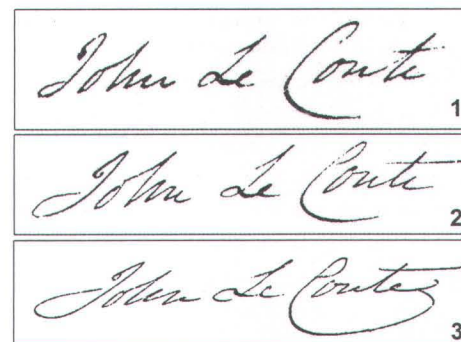 John Le Conte
1
John Le Conte
2
John Le Conte
3